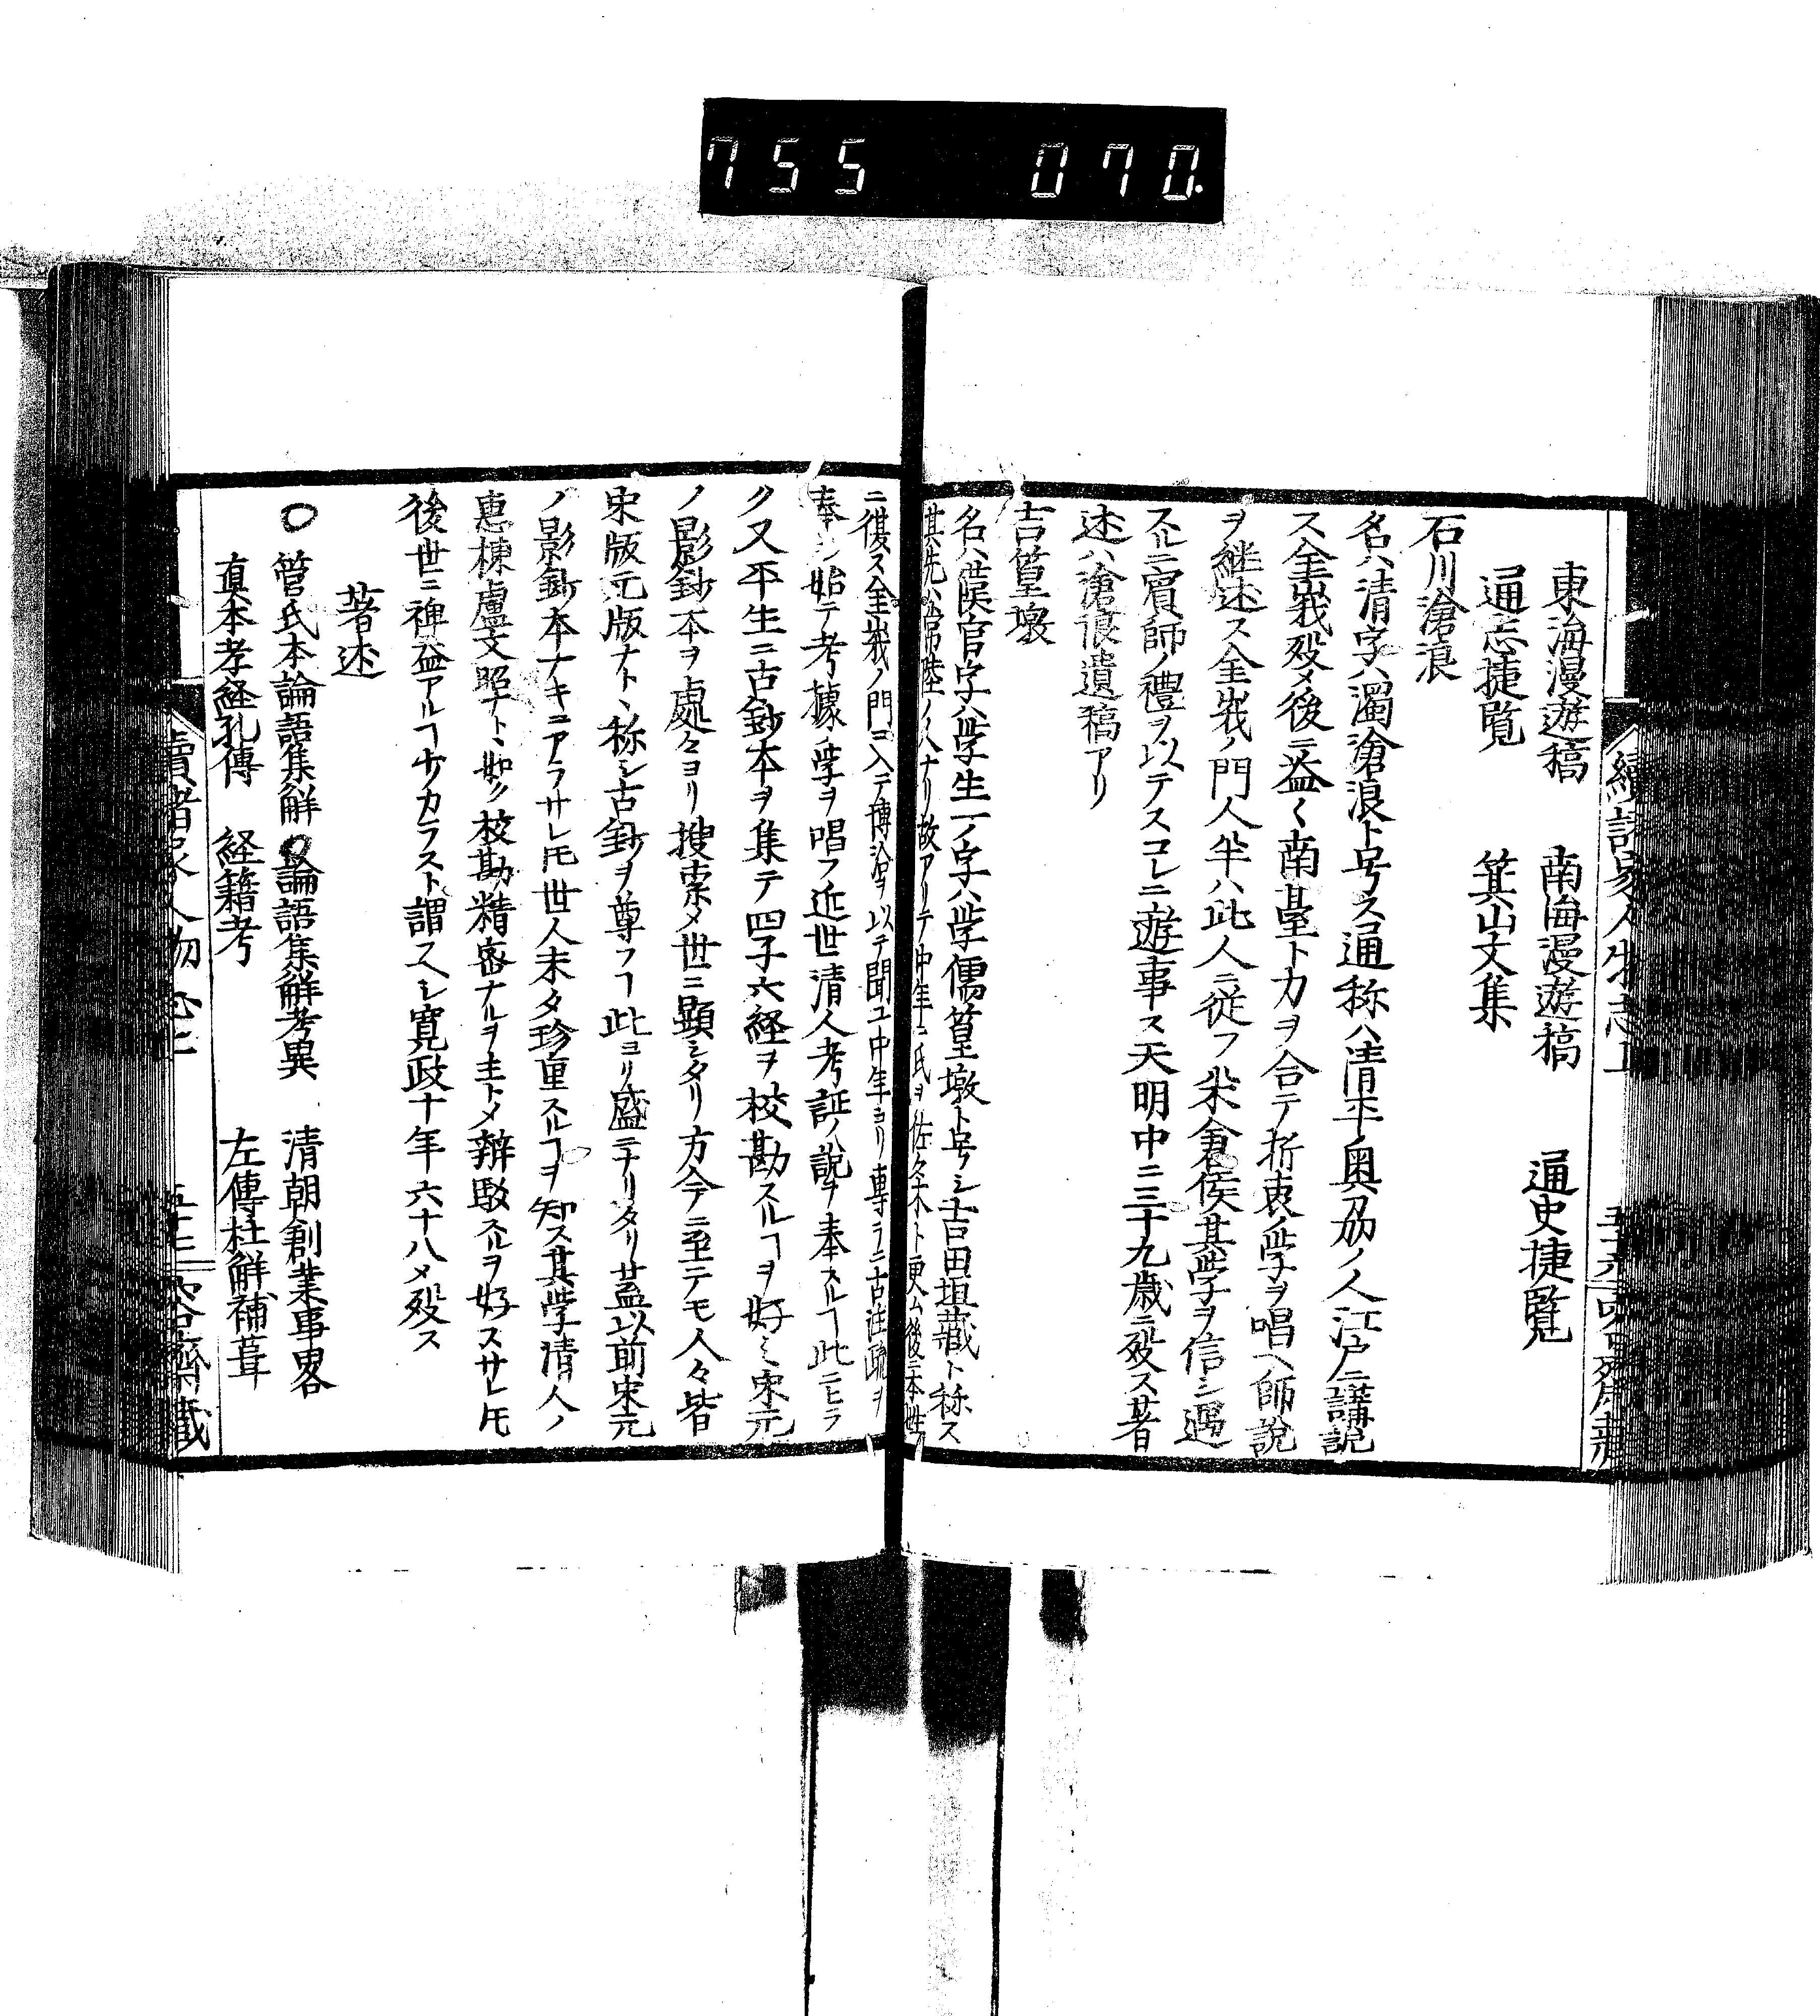 755 070.
東海漫遊稿 南海漫遊稿 通史捷覧
通志捷覧 箕山文集
石川滄浪
名ハ清字ハ濁滄浪ト号ス通称ハ清平奥刕ノ人江戸ニ講説
ス金峩殁メ後ニ益〱南䑓ト力ヲ合テ折衷ノ学ヲ唱ヘ師説
ヲ継述ス金峩ノ門人半ハ此人ニ従フ米倉侯其学ヲ信シ遇
スルニ賓師ノ禮ヲ以テスコレニ遊事ス天明中ニ三十九歳ニ殁ス著
述ハ滄浪遺稿アリ
吉篁墩
名ハ漢官字ハ学生一ノ字ハ学儒篁墩ト号シ吉田坦藏ト称ス
其先ハ常陸ノ人ナリ故アリテ中年ニ氏ヲ佐々木ト更ム後ニ本姓
ニ復ス金峩ノ門ニ入テ博洽ヲ以テ聞ユ中年ヨリ專ラニ古注疏ヲ
奉シ始テ考據ノ学ヲ唱フ近世清人考証ノ說ヲ奉スルヿ此ニヒラ
ク又平生ニ古鈔本ヲ集テ四子六経ヲ校勘スルヿヲ好ミ宋元
ノ影鈔本ヲ處々ヨリ搜索メ世ニ顯シタリ方今ニ至テモ人々皆
宋版元版ナト丶称シ古鈔ヲ尊フヿ此ヨリ盛ニナリタリ蓋以前宋元
ノ影鈔本ナキニアラサレ𪜈世人未タ珍重スルヿヲ知ス其学清人ノ
惠棟盧文昭ナト丶如ク校勘精密ナルヲ主トメ辨駁スルヲ好スサレ𪜈
後世ニ裨益アルヿ少カラスト謂スヘシ寛政十年六十八メ殁ス
著述
○菅氏本論語集解 ○論語集解考異 清朝創業事畧
真本孝経孔傳 経籍考 左傳杜解補葺